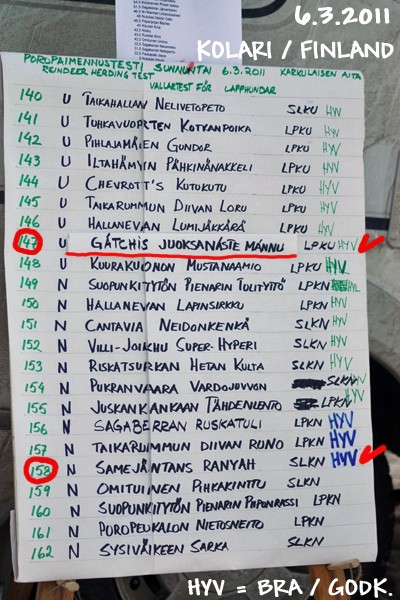 6.3.2011
KOLARI / FINLAND
POROPAIMENNUSTESTI SUNNUNTAI 6.3.2011 KARKULAISEN AITA
REINDEER HERDING TEST
VALLARTEST FÖR LAPPHUNDAR
140 U TAIKAHALLAN NELIVETOPETO SLKU HYV
141 U TUHKAVUORTEN KOTKANPOIKA LPKU HYV
142 U PIHLAJAMÄEN GUNDOR LPKU HYV
143 U ILTAHÄMYN PÄHKINÄNAKKELI LPKU HYV
144 U CHEVROTT'S KUTUKUTU LPKU HYV
145 U TAIKARUMMUN DIIVAN LORU LPKU HYV
146 U HALLANEVAN LUMIJÄKKÄRÄ LPKU HYV
147 U GÅTCHIS JUOKSANÁSTE MÁNNU LPKU HYV
148 U KUURAKUONON MUSTANAAMIO LPKU HYV
149 N SUOPUNKITYTÖN PIENARIN TULITYTTÖ LPKN HYV
150 N HALLANEVAN LAPINSIRKKU LPKN HYV
151 N CANTAVIA NEIDONKENKÄ SLKN HYV
152 N VILLI-JOIKHU SUPER-HYPERI SLKN HYV
153 N RISKATSURKAN HETAN KULTA SLKN HYV
154 N PUKRANVAARA VARDOJUVVON SLKN HYV
155 N JUSKANKANKAAN TÄHDENLENTO LPKN HYV
156 N SAGABERRAN RUSKATULI LPKN HYV
157 N TAIKARUMMUN DIIVAN RUNO LPKN HYV
158 N SAMEJÄNTANS RANYAH SLKN HYV
159 N OMITUINEN PIHKAKINTTU SLKN
160 N SUOPUNKITYTÖN PIENARIN PIIPONRASSI LPKN
161 N POROPEUKALON NIETOSNEITO LPKN
162 N SYSIVÄIKEEN SARKA SLKN
HYV = BRA / GODK.